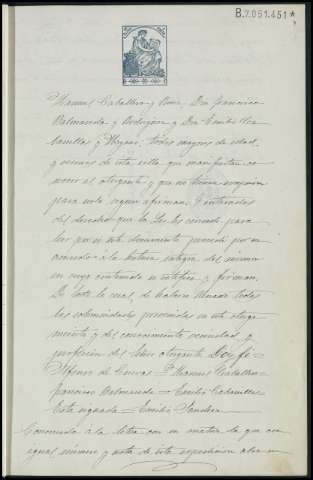 B.7.051.451*
Manuel Caballero y Rome, Don Francisco
Balmaseda y Rodriguez y Don Emilio Ca
banillas y Moyano; todos mayores de edad,
y vecinos de esta villa, que manifiestan co
nocer al otorgante y que no tienen excepcion
para serlo segun afirman. Y enterados
del derecho que la Ley les concede para
leer por si este documento procedi por su
acuerdo á la lectura integra del mismo
en cuyo contenido se ratifica y firman.
De todo lo cual, de haberse llenado todas
las solemnidades prevenidas en este otorga
miento y del conocimiento vecindad y
profesion del Señor otorgante Doy fé =
Alfonso de Cuevas = Manuel Caballero =
Francisco Balmaseda = Emilio Cabanillas
Esta signado = Emilio
Concuerda á la letra con su matriz la que con
igual número y nota de esta expedicion obra en